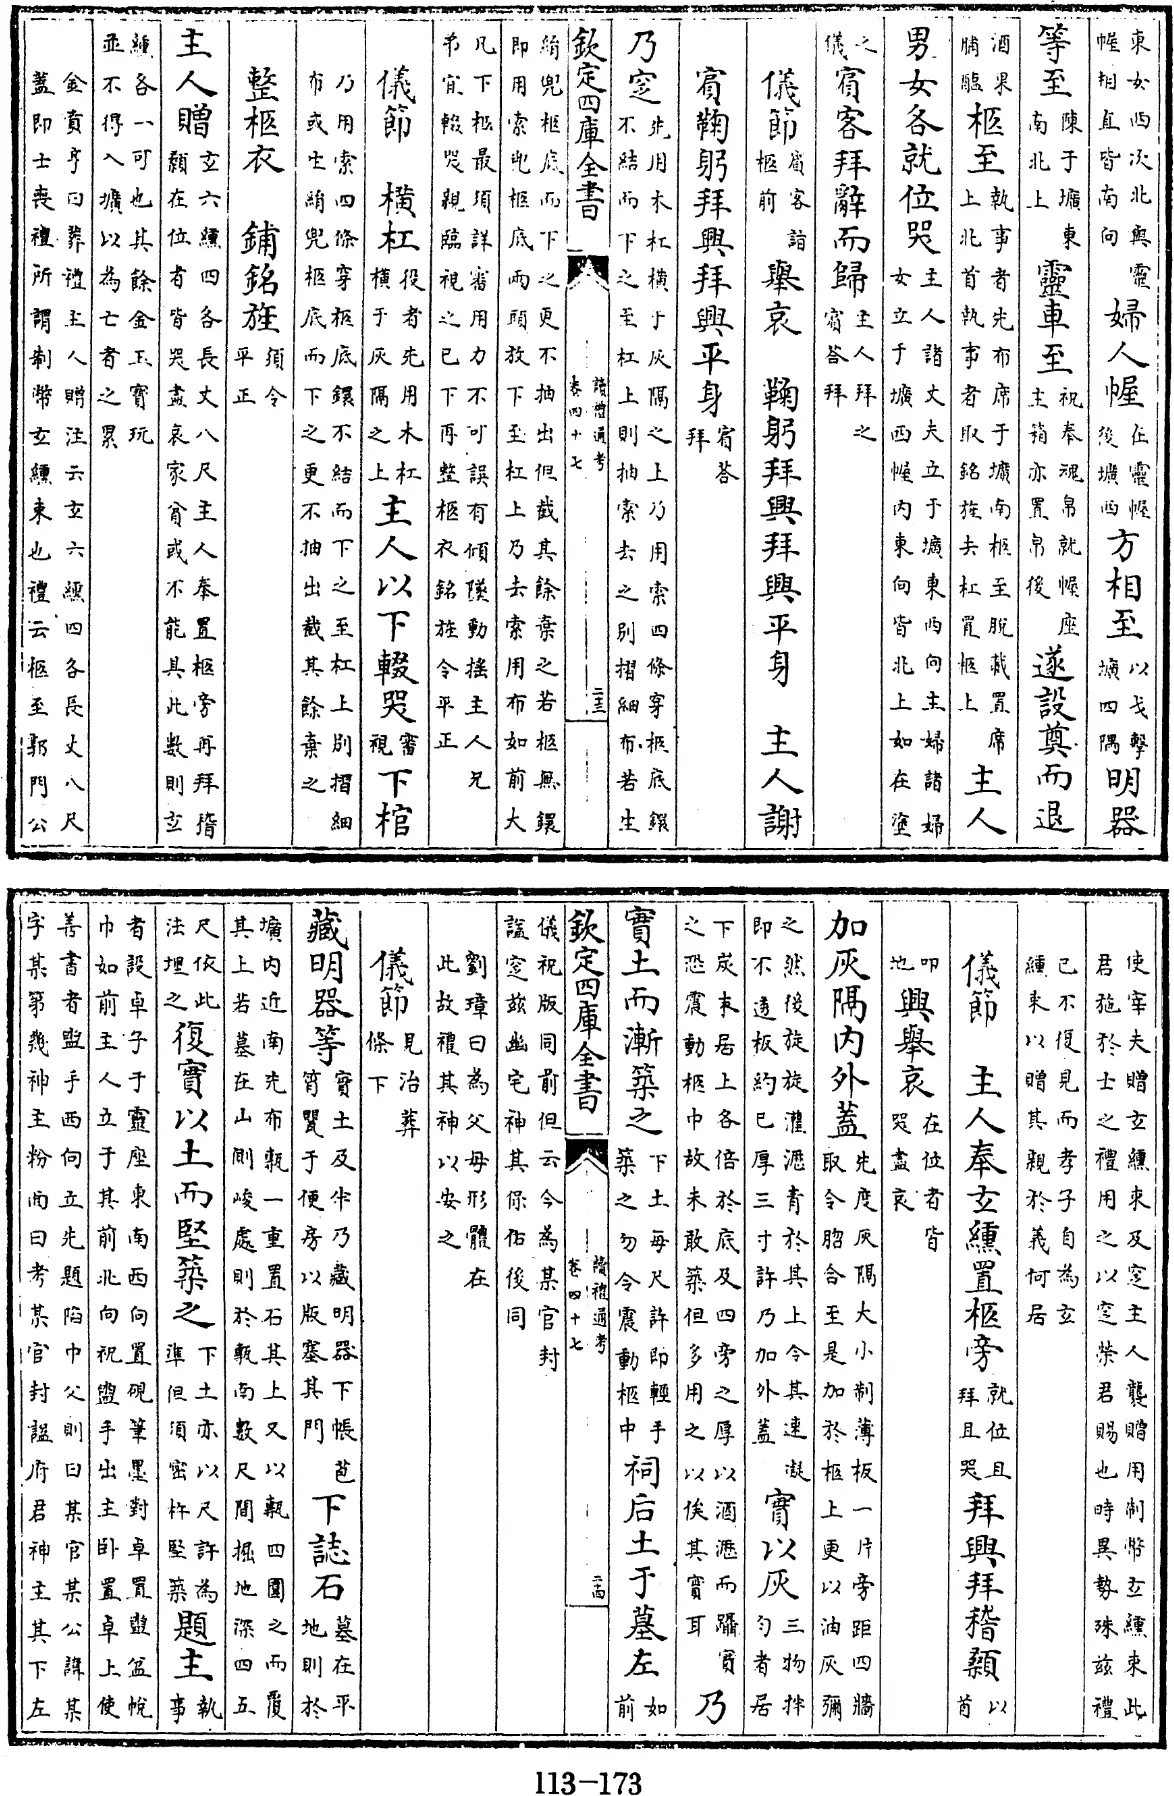 東女西次北與靈幄相直皆南向婦人幄在靈幄後壙西方相至以戈擊壙四隅明器
等至陳于壙東南北上靈車至祝奉魂帛就幄座主箱亦置帛後遂設奠而退
酒果脯醢柩至執事者先布席于壙南柩至脫載置席上北首執事者取銘旌去杠置柩上主人
男女各就位哭主人諸丈夫立于壙東西向主婦諸婦女立于壙西幄內東向皆北上如在塗
之儀賓客拜辭而歸主人拜之賓答拜
儀節賓客詣柩前舉哀 鞠躬拜興拜興平身 主人謝
賓鞠躬拜興拜興平身賓答拜
乃窆先用木杠橫于灰隔之上乃用索四條穿柩底鐶不結而下之至杠上則抽索去之別摺細布若生
欽定四庫全書 讀禮通考 卷四十七 二十三
絹兜柩底而下之更不抽出但截其餘棄之若柩無鐶即用索兜柩底兩頭放下至杠上乃去索用布如前大
凡下柩最須詳審用力不可誤有傾墜動搖主人兄弟宜輟哭親臨視之已下再整柩衣銘旌令平正
儀節 橫杠役者先用木杠橫于灰隔之上主人以下輟哭審視下棺
乃用索四條穿柩底鐶不結而下之至杠上別摺細布或生絹兜柩底而下之更不抽出截其餘棄之
整柩衣 鋪銘旌須令平正
主人贈玄六纁四各長丈八尺主人奉置柩旁再拜稽顙在位者皆哭盡哀家貧或不能具此數則玄
纁各一可也其餘金玉寶玩並不得入壙以為亡者之累
金賁亨曰葬禮主人贈注云玄六纁四各長丈八尺蓋即士喪禮所謂制幣玄纁束也禮云柩至郭門公
使宰夫贈玄纁束及窆主人襲贈用制幣玄纁束此君施於士之禮用之以窆榮君賜也時異勢殊茲禮
已不復見而孝子自為玄纁束以贈其親於義何居
儀節 主人奉玄纁置柩旁就位且拜且哭拜興拜稽顙以首
叩地興舉哀在位者皆哭盡哀
加灰隔內外蓋先度灰隔大小制薄板一片旁距四牆取令脗合至是加於柩上更以油灰彌
之然後旋旋灌瀝青於其上令其速凝即不透板約已厚三寸許乃加外蓋實以灰三物拌勻者居
下炭末居上各倍於底及四旁之厚以酒灑而躡實之恐震動柩中故未敢築但多用之以俟其實耳乃
實土而漸築之下土每尺許即輕手築之勿令震動柩中祠后土于墓左如前
欽定四庫全書 讀禮通考 卷四十七 二十四
儀祝版同前但云今為某官封諡窆茲幽宅神其保佑後同
劉璋曰為父母形體在此故禮其神以安之
儀節見治葬條下
藏明器等實土及半乃藏明器下帳苞筲甖于便房以版塞其門下誌石墓在平地則於
壙內近南先布甎一重置石其上又以甎四圍之而覆其上若墓在山側峻處則於甎南數尺間掘地深四五
尺依此法埋之復實以土而堅築之下土亦以尺許為準但須密杵堅築題主執事
者設卓子于靈座東南西向置硯筆墨對卓置盥盆帨巾如前主人立于其前北向祝盥手出主卧置卓上使
善書者盥手西向立先題陷中父則曰某官某公諱某字某第幾神主粉面曰考某官封諡府君神主其下左
113-173